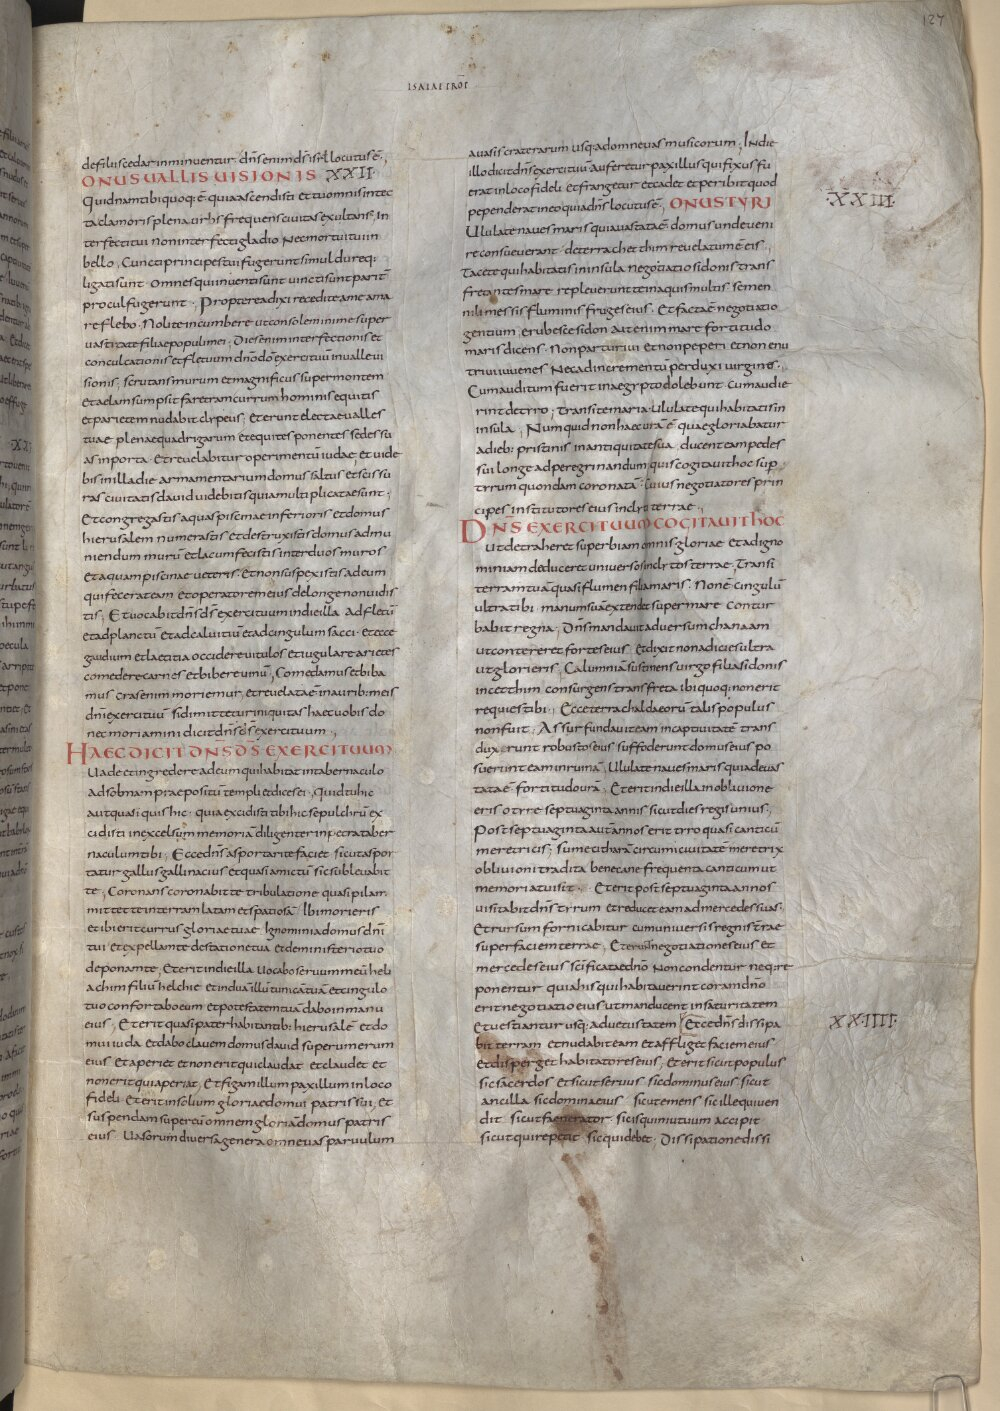 127
ISAIAE PROF̄
defiliuscedar inminuentur · dn̄s enim d̄s isrl̄ locutus ē ·,
ONUS UALLIS UISIONIS XXII
Quidnam tibi quoq; ē · quia ascendisti et tu omnis intec
ta clamoris plena urbs frequens ciuitas exultans · in
terfecti tui non interfecti gladio Nec mortui tui in
bello , Cuncti principes tui fugerunt simul dureq;
ligati sunt · Omnes qui inuenti sunt uincti sunt parit̄
procul fugerunt · Propterea dixi recedite a me ama
re flebo · Nolite incumbere ut consolemini me super
uastitate filiae populi mei · Dies enim interfectionis et
conculcationis et fletuum dn̄o d̄o exercituū in ualle ui
sionis , scrutans murum et magnificus super montem
Et aelam sumpsit faretram currum hominis equitis
et parietem nudabit clypeus , Et erunt electae ualles
tuae plenae quadrigarum et equites ponentes sedes su
as in porta · Et reuelabitur operimentū iudae et uide
bis in illa die armamentarium domus saltus et scissu
ras ciuitatis dauid uidebitis quia multiplicatae sunt ,
Et congregastis aquas piscinae inferioris et domus
hierusalem numerastis et destruxistis domus ad mu
niendum murū et lacum fecistis inter duos muros
Et aquam piscinae ueteris · Et non suspexistis ad eum
qui fecerat eam et operatorem eius de longe non uidis
tis , Et uocabit dn̄s d̄s exercituum in die illa Ad fletū
et ad planctū et ad caluitiū et ad cingulum sacci · et ecce
gaudium et laetitia occidere uitulos et iugulare arietes
comedere carnes et bibere uinū , Comedamus et biba
mus cras enim moriemur , et reuelata ē in aurib; meis
dn̄i exercituū si dimittetur iniquitas haec uobis do
nec moriamini dicit dn̄s d̄s exercituum ·,
HAEC DICIT DN̄S D̄S EXERCITUUM
Uade et ingredere ad eum qui habitat in tabernaculo
Ad sobnam praepositū templi et dices ei , Quid tu hic
aut quasi quis hic · quia excidisti tibi hic sepulchrū ex
cidisti in excelsum memoriā diligenter in petra taber
naculum tibi , Ecce dn̄s asportari te faciet sicut aspor
tatur gallus gallinacius et quasi amictū sic subleuabit
te , Coronans coronabit te tribulatione quasi pilam
mittet te in terram latam et spatiosā · Ibi morieris
et ibi erit currus gloriae tuae Ignominia domus dn̄i
tui Et expellam te de statione tua Et de ministerio tuo
deponam te , Et erit in die illa Uocabo seruum meū heli
achim filiū helchie et induā illū tunicā tuā et cingulo
tuo confortabo eum et potestatem tuā dabo in manu
eius , Et erit quasi pater habitantib; hierusalē et do
mui iuda et dabo clauem domus dauid super umerum
eius Et aperiet et non erit qui claudat et claudet et
non erit qui aperiat , Et figam illum paxillum in loco
fideli · Et erit in solium gloriae domui patris sui , et
suspendam super eū omnem gloriā domus patris
eius · Uasorum diuersa genera omne uas paruulum
a uasis craterarum usq; ad omne uas musicorum , In die
illo dicit dn̄s exercituū auferetur paxillus qui fixus fu
erat in loco fideli et frangetur et cadet et peribit quod
pependerat in eo quia dn̄s locutus ē , ONUS TYRI
·XXIII·
Ululate naues maris quia uastata ē domus unde ueni
re consueuerant · de terra chethim reuelatum ē eis ,
Tacete qui habitatis in insula negotiatio sidonis trans
fretantes mare repleuerunt te in aquis multis semen
nili messis fluminis fruges eius · Et facta ē negotiatio
gentium , erubesce sidon ait enim mare fortitudo
maris dicens · Non parturiui et non peperi et non enu
triui iuuenes Nec ad incrementū perduxi uirgines ,
Cum auditum fuerit in aegypto dolebunt · cum audie
rint de tyro , Transite maria · ululate qui habitatis in
insula , Numquid non haec ura ē quae gloriabatur
a dieb; pristinis in antiquitate sua · ducent eam pedes
sui longe ad peregrinandum quis cogitauit hoc sup̄
tyrum quondam coronatā · Cuius negotiatores prin
cipes institutores eius inclyti terrae ,
DN̄S EXERCITUUM COGITAUIT HOC
Ut detraheret superbiam omnis gloriae et ad igno
miniam deduceret uniuersos inclytos terrae · Transi
terram tuā quasi flumen filia maris · Non ē cingulū
ultra tibi manum suā extendet super mare Contur
babit regna , Dn̄s mandauit aduersum chanaam
ut contereret fortes eius · et dixit non adicies ultra
ut glorieris , Calumniā sustinens uirgo filia sidonis
in cetthim consurgens transfreta ibi quoq; non erit
requies tibi , Ecce terra chaldaeorū talis populus
non fuit , Assur fundauit eam in captiuitatē trans
duxerunt robustos eius suffoderunt domus eius po
suerunt eam in ruinā , Ululate naues maris quia deuas
tata ē fortitudo ura , Et erit in die illa in obliuione
eris o tyre septuaginta annis sicut dies regis unius ,
Post septuaginta aut annos erit tyro quasi canticū
meretricis , sume citharā circumi ciuitatē meretrix
obliuioni tradita bene cane frequenta canticum ut
memoria tui sit · , Et erit post septuaginta annos
uisitabit dn̄s tyrum et reducet eam ad mercedes suas ·
Et rursum fornicabitur cum uniuersis regnis t̄rae
super faciem terrae , Et erunt negotiationes eius et
mercedes eius sc̄ificatae dn̄o Non condentur neq; re
ponentur quia his qui habitauerint coram dn̄o
erit negotiatio eius ut manducent in saturitatem
Et uestiantur usq; ad uetustatem Ecce dn̄s dissipa
XXIIII·
bit terram et nudabit eam et affliget faciem eius
et disperget habitatores eius , et erit sicut populus
sic sacerdos et sicut seruus sic dominus eius · sicut
ancilla sic domina eius sicut emens sic ille qui uen
dit sicut faenerator sic is qui mutuum accipit
sicut qui repetit sic qui debet , Dissipatione dissi